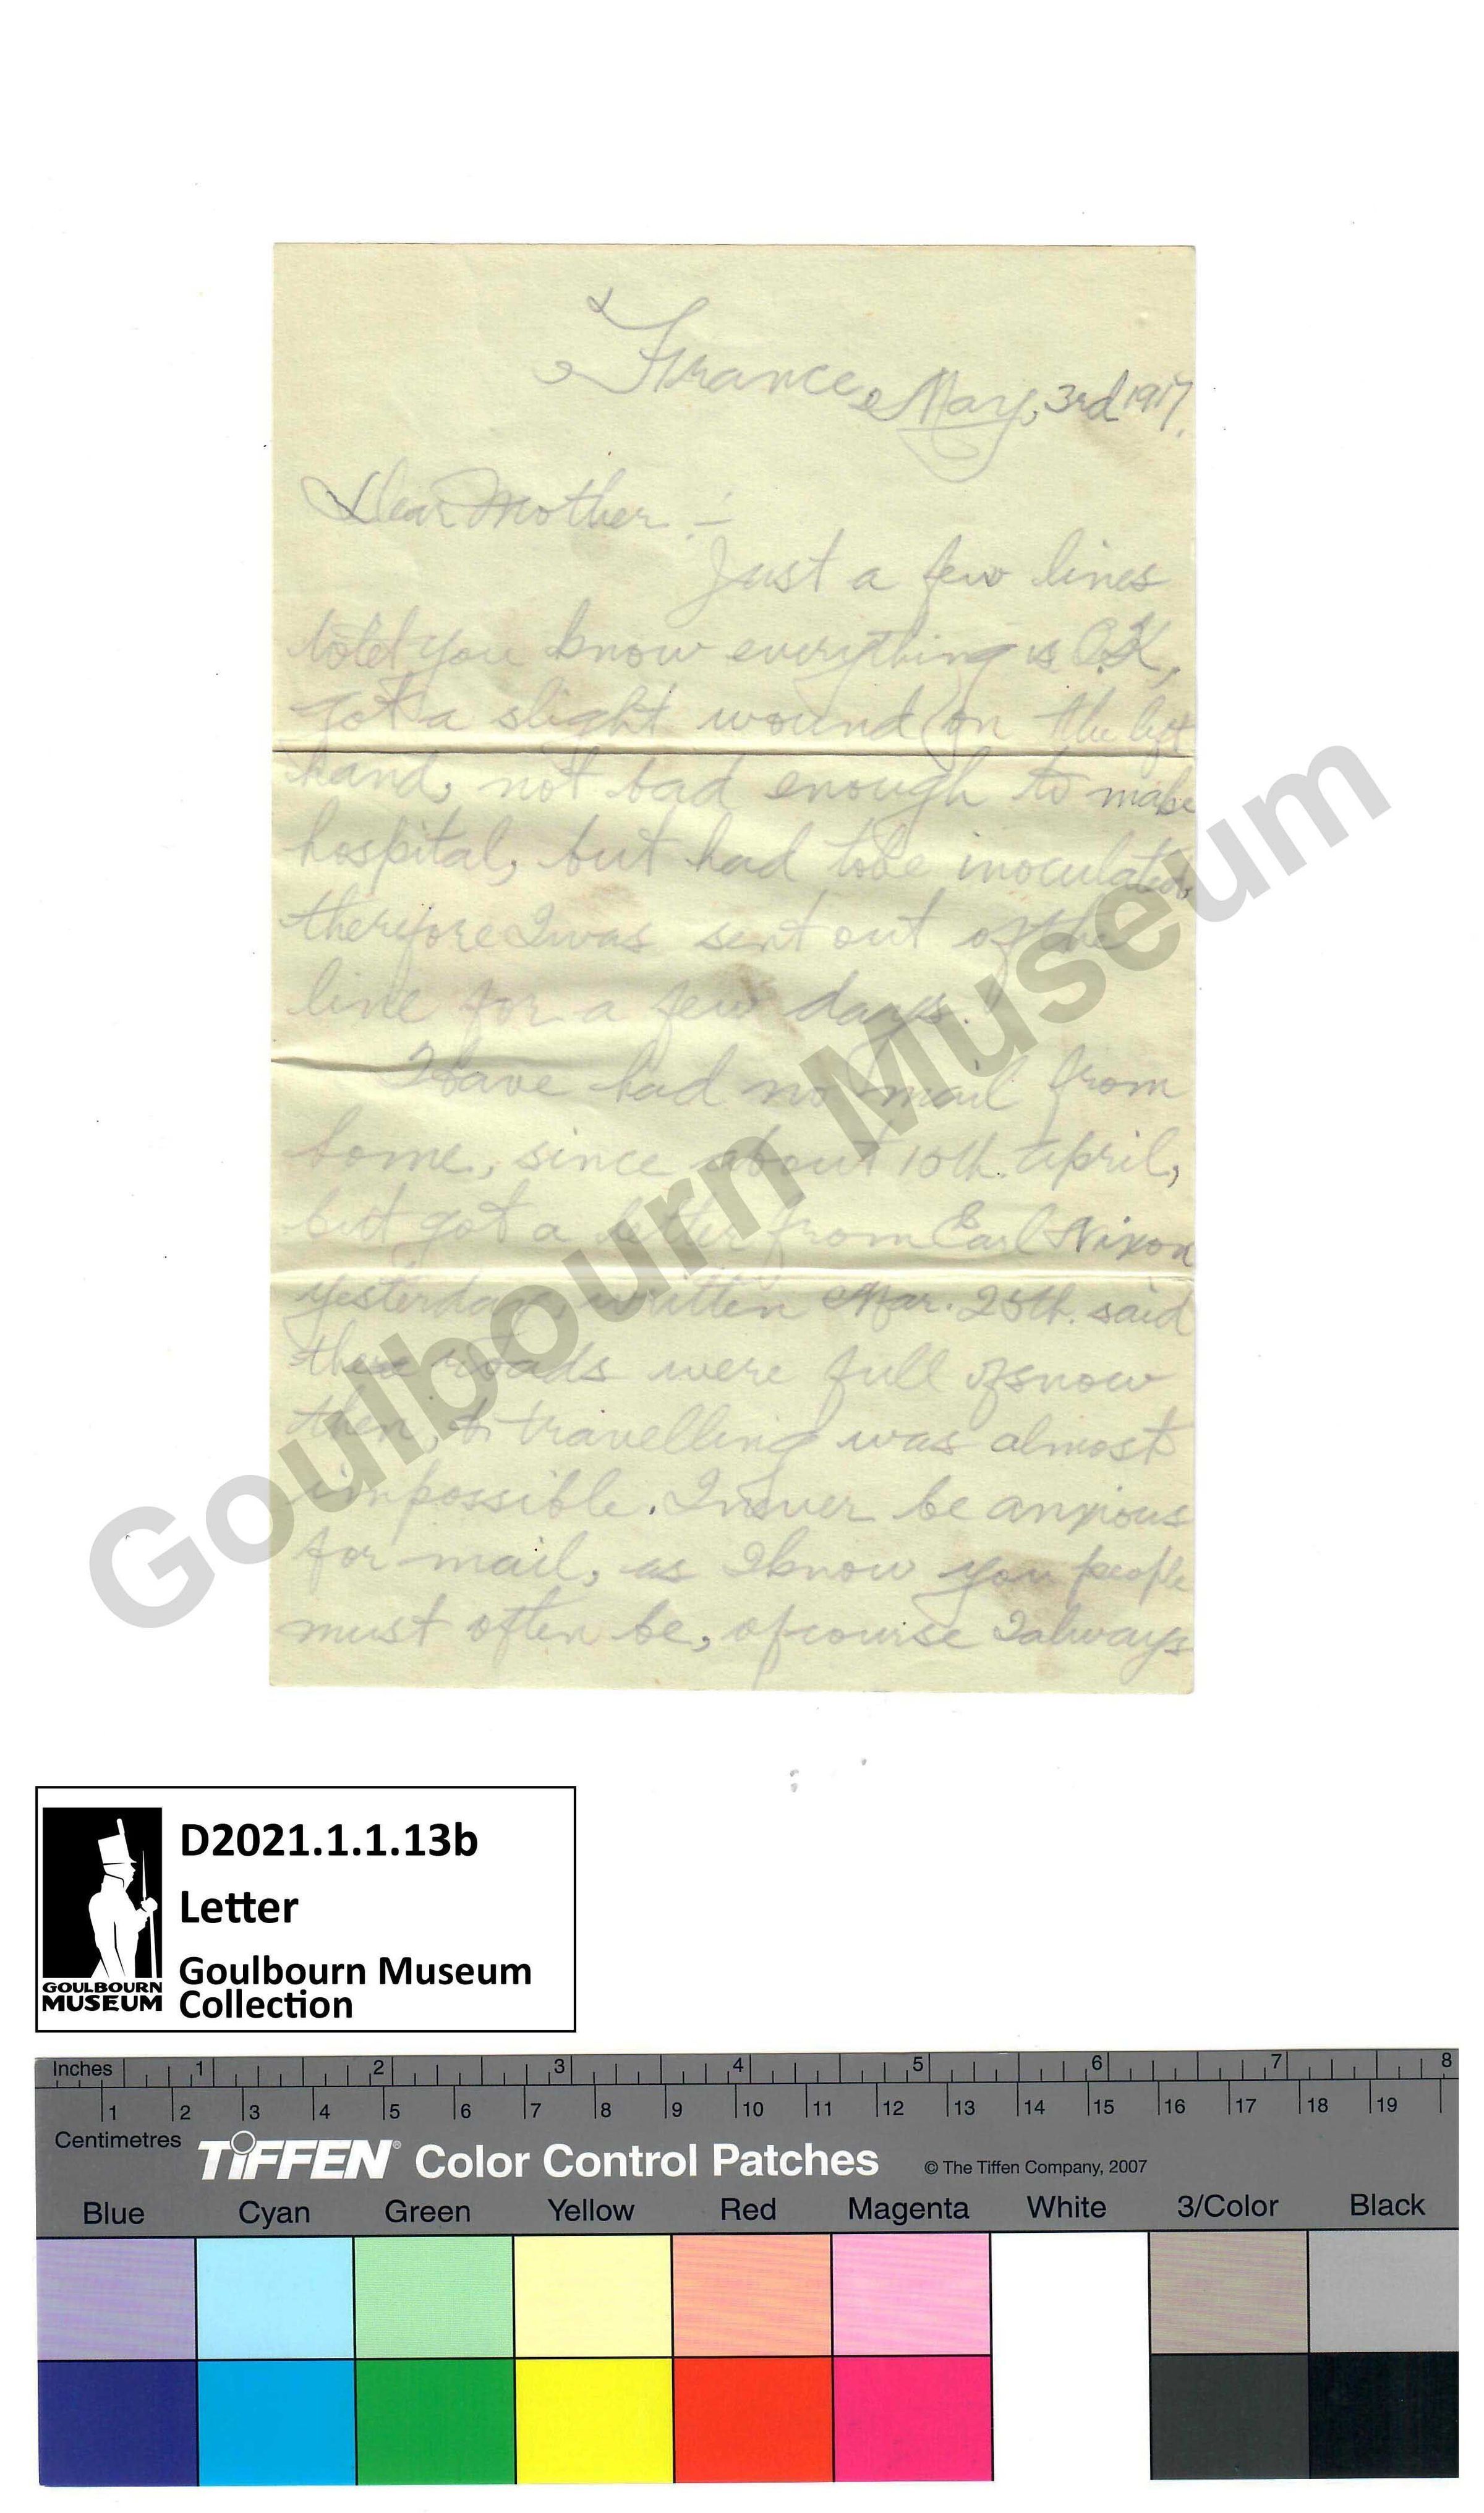 France, May, 3rd 1917.
Dear Mother :-
Just a few lines
to let you know everything is O.K,
got a slight wound on the left
hand, not bad enough to make
hospital, but had to be inoculated,
therefore I was sent out of the
line for a few days.
I have had no mail from
home, since about 10th. April,
but got a letter from Earl Nixon
yesterday, written Mar. 25th. said
there roads were full of snow
then, & travelling was almost
impossible. I never be anxious
for mail, as I know you people
must often be, of course I always
Goulbourn Museum
D2021.1.1.13b
Letter
Goulbourn Museum
Collection
GOULBOURN
MUSEUM
Inches 1 2 3 4 5 6 7 8
1 2 3 4 5 6 7 8 9 10 11 12 13 14 15 16 17 18 19
Centimetres
TIFFEN® Color Control Patches © The Tiffen Company, 2007
Blue Cyan Green Yellow Red Magenta White 3/Color Black